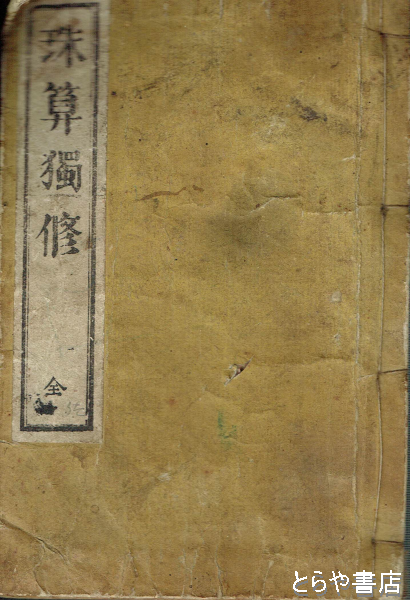 珠算獨修
全
とらや書店